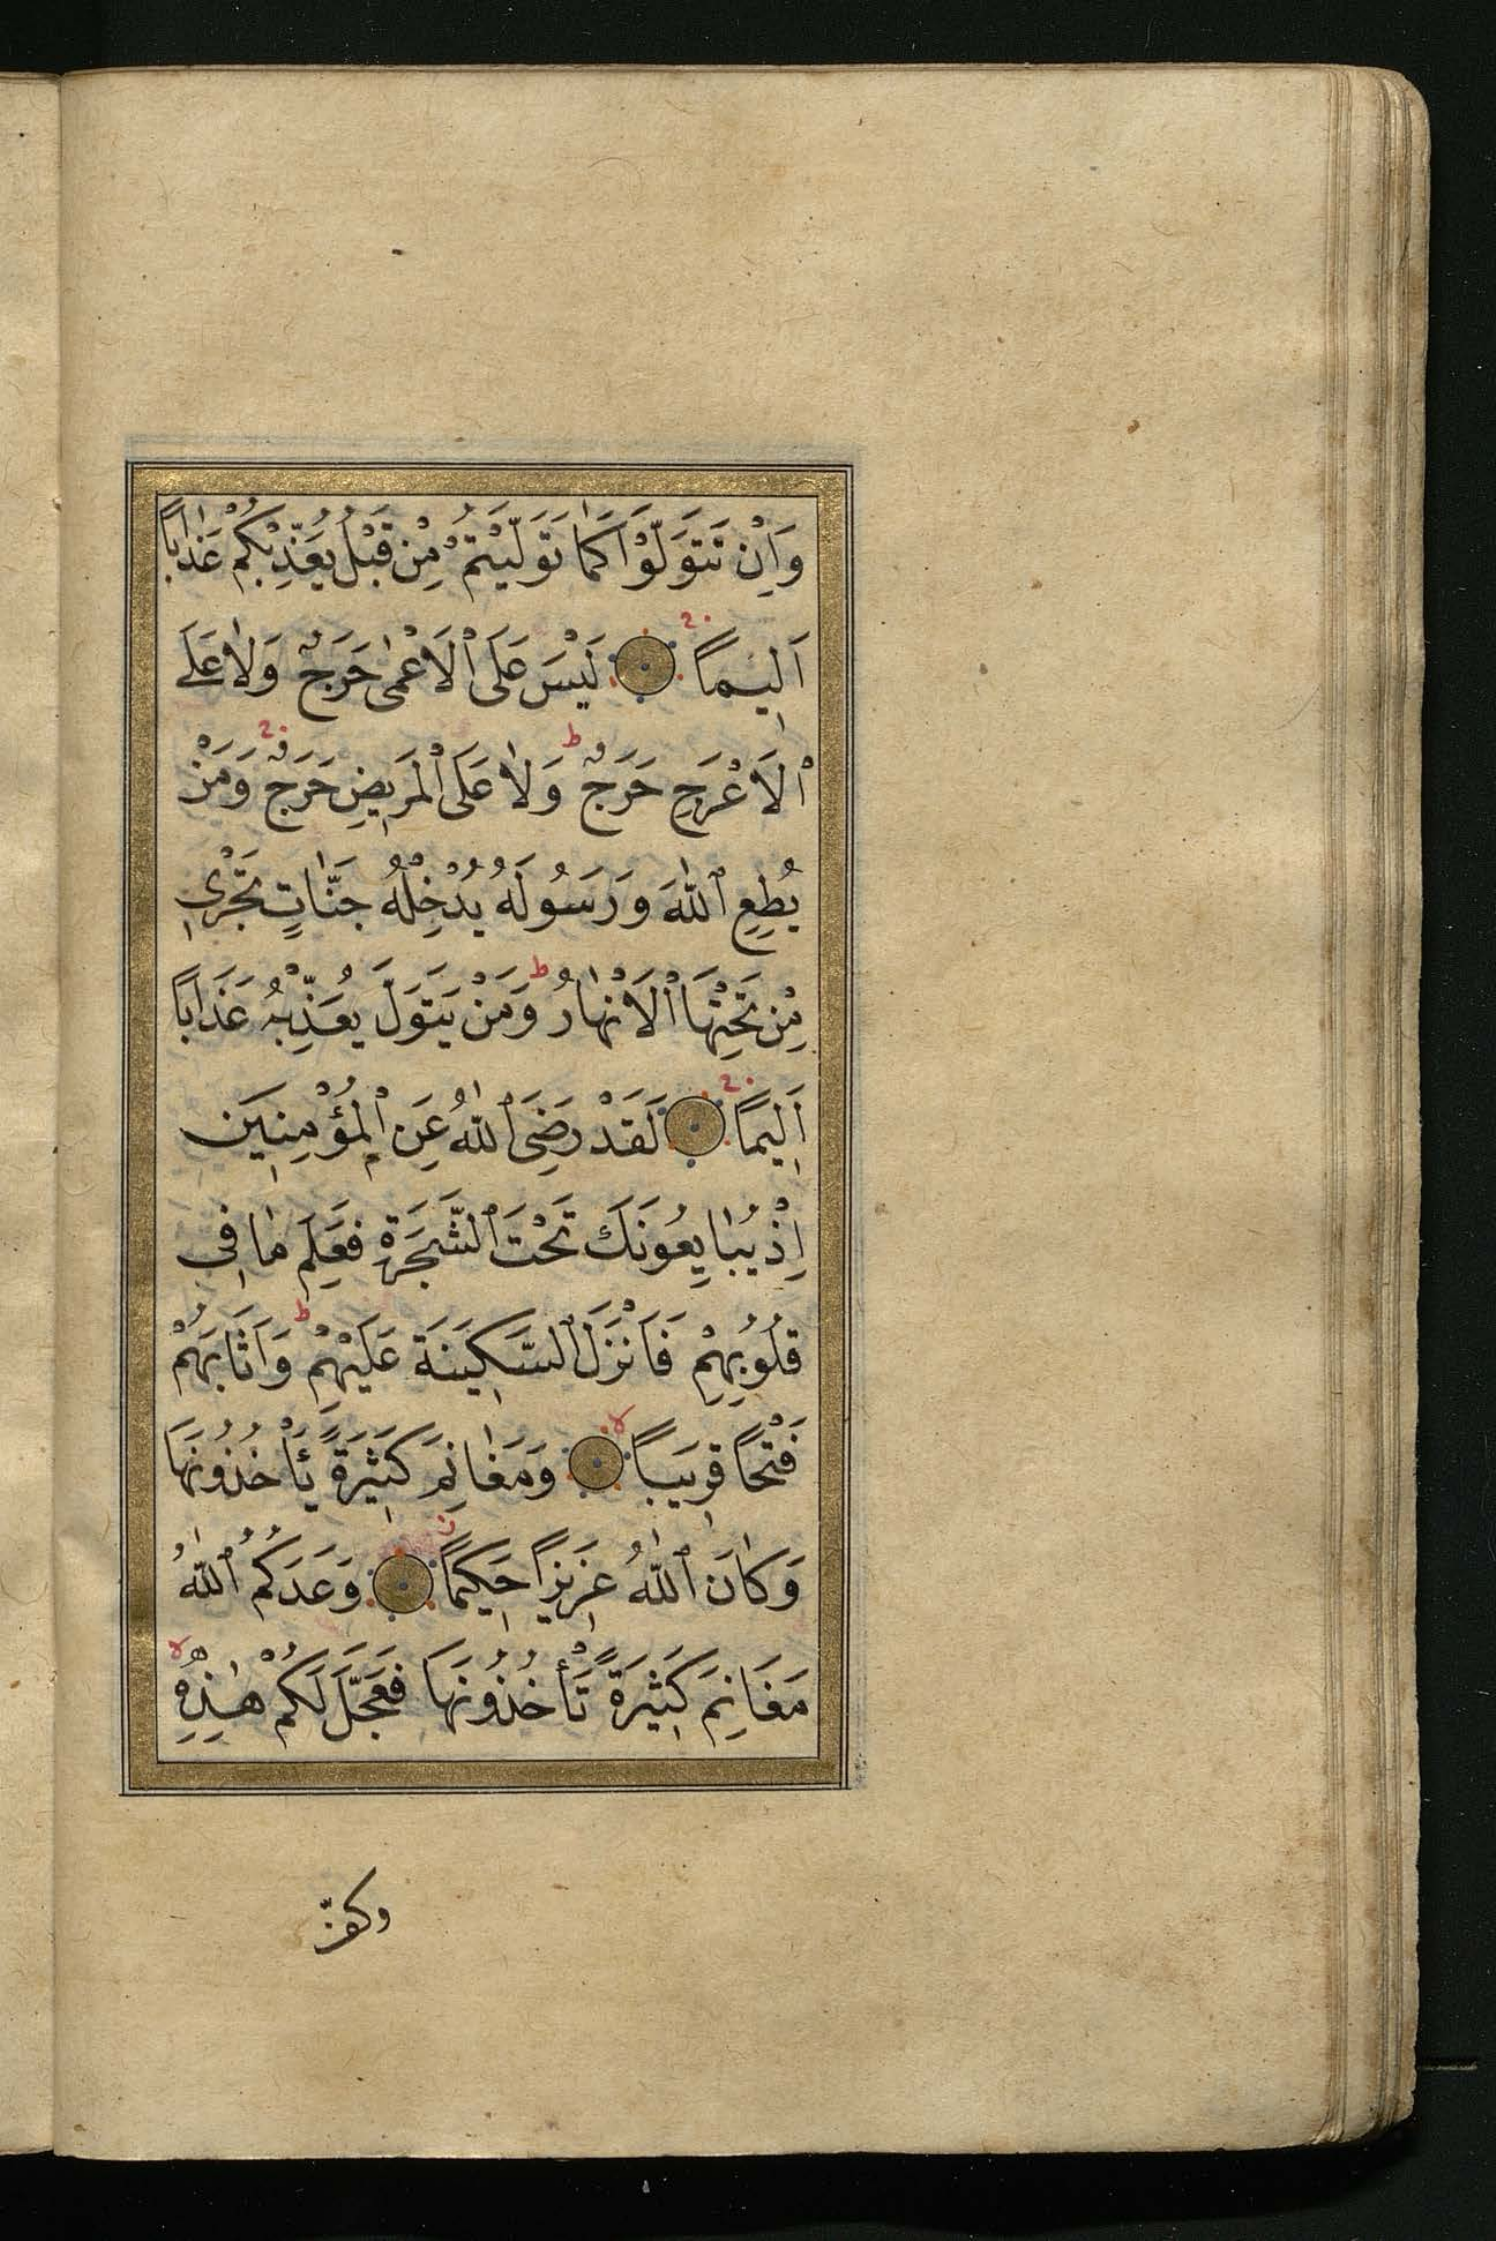 وَاِنْ تَتَوَلَّوْا كَمٰا تَوَلَّيْتُمْ مِنْ قَبْلُ يُعَذِّبْكُمْ عَذٰاباً
اَلِيماً ۞ لَيْسَ عَلَى ٱلْاَعْمٰى حَرَجٌ وَلٰا عَلَى
ٱلْاَعْرَجِ حَرَجٌ ط وَلٰا عَلَى ٱلْمَرِيضِ حَرَجٌ وَمَنْ
يُطِعِ ٱللّٰهَ وَرَسُولَهُ يُدْخِلْهُ جَنّٰاتٍ تَجْرِي
مِنْ تَحْتِهَا ٱلْاَنْهٰارُ ط وَمَنْ يَتَوَلَّ يُعَذِّبْهُ عَذَاباً
اَلِيمًا ۞ لَقَدْ رَضِيَ ٱللّٰهُ عَنِ ٱلْمُؤْمِنِينَ
اِذْ يُبٰايِعُونَكَ تَحْتَ ٱلشَّجَرَةِ فَعَلِمَ مٰا فِي
قُلُوبِهِمْ فَاَنْزَلَ ٱلسَّكِينَةَ عَلَيْهِمْ ط وَاَثَابَهُمْ
فَتْحًا قَرِيبًا لا ۞ وَمَغٰانِمَ كَثِيرَةً يَأْخُذُونَهَا
وَكٰانَ ٱللّٰهُ عَزِيزاً حَكِيمًا ۞ وَعَدَكُمُ ٱللّٰهُ
مَغَانِمَ كَثِيرَةً تَأْخُذُونَهَا فَعَجَّلَ لَكُمْ هٰذِهِ لا
وكفّ